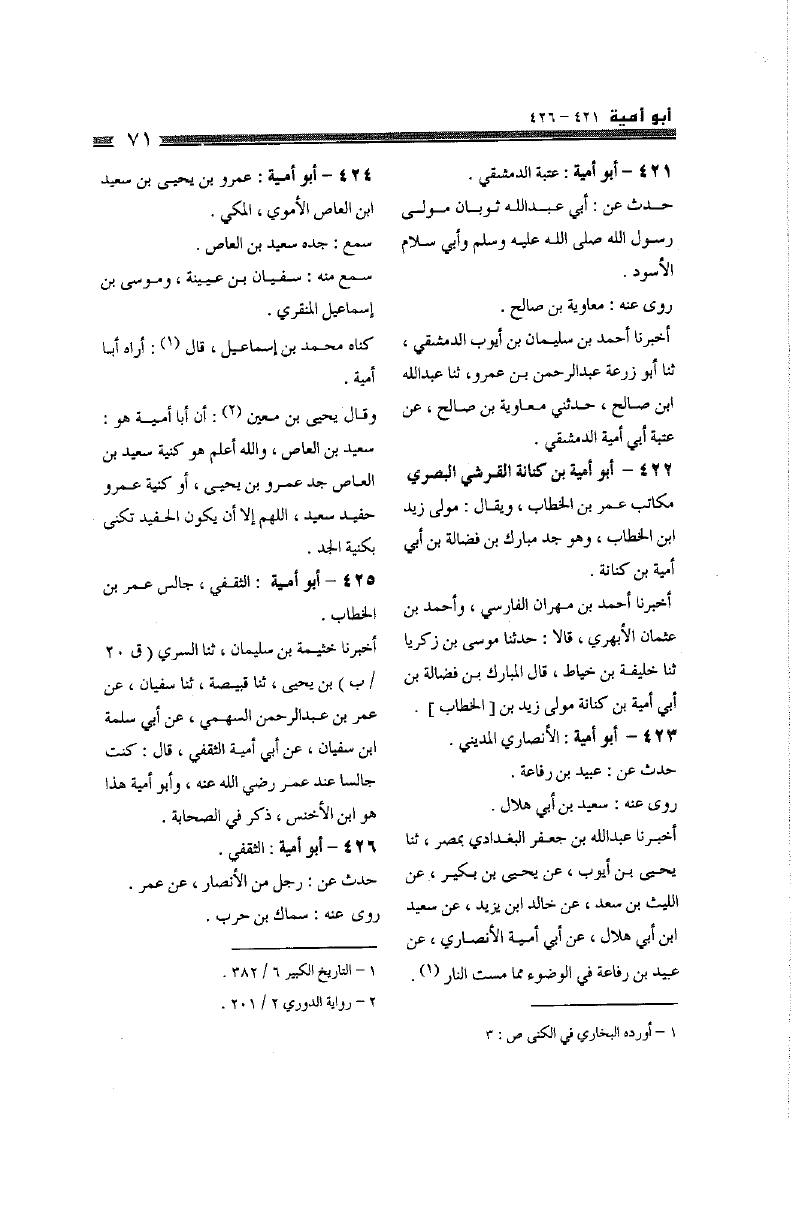 أبو أمية ٤٢١ – ٤٢٦
٧١
٤٢١ – أبو أمية : عتبة الدمشقي .
حدث عن : أبي عبدالله ثوبان مولى
رسول الله صلى الله عليه وسلم وأبي سلام
الأسود .
روى عنه : معاوية بن صالح .
أخبرنا أحمد بن سليمان بن أيوب الدمشقي ،
ثنا أبو زرعة عبدالرحمن بن عمرو، ثنا عبدالله
ابن صالح ، حدثني معاوية بن صالح ، عن
عتبة أبي أمية الدمشقي .
٤٢٢ – أبو أمية بن كنانة القرشي البصري
مكاتب عمر بن الخطاب ، ويقال : مولى زيد
ابن الخطاب ، وهو جد مبارك بن فضالة بن أبي
أمية بن كنانة .
أخبرنا أحمد بن مهران الفارسي ، وأحمد بن
عثمان الأبهري ، قالا : حدثنا موسى بن زكريا
ثنا خليفة بن خياط ، قال المبارك بن فضالة بن
أبي أمية بن كنانة مولى زيد بن [ الخطاب ] .
٤٢٣ – أبو أمية : الأنصاري المديني .
حدث عن : عبيد بن رفاعة .
روى عنه : سعيد بن أبي هلال .
أخبرنا عبدالله بن جعفر البغدادي بمصر ، ثنا
يحيى بن أيوب ، عن يحيى بن بكير ، عن
الليث بن سعد ، عن خالد ابن يزيد ، عن سعيد
ابن أبي هلال ، عن أبي أمية الأنصاري ، عن
عبيد بن رفاعة في الوضوء مما مست النار (١) .
١ – أورده البخاري في الكنى ص : ٣
٤٢٤ – أبو أمية : عمرو بن يحيى بن سعيد
ابن العاص الأموي ، المكي .
سمع : جده سعيد بن العاص .
سمع منه : سفيان بن عيينة ، وموسى بن
إسماعيل المنقري .
كناه محمد بن إسماعيل ، قال (١) : أراه أبا
أمية .
وقال يحيى بن معين (٢) : أن أبا أمية هو :
سعيد بن العاص ، والله أعلم هو كنية سعيد بن
العاص جد عمرو بن يحيى ، أو كنية عمرو
حفيد سعيد ، اللهم إلا أن يكون الحفيد تكنى
بكنية الجد .
٤٢٥ – أبو أمية : الثقفي ، جالس عمر بن
الخطاب .
أخبرنا خثيمة بن سليمان ، ثنا السري ( ق ٢٠
/ ب ) بن يحيى ، ثنا قبيصة ، ثنا سفيان ، عن
عمر بن عبدالرحمن السهمي ، عن أبي سلمة
ابن سفيان ، عن أبي أمية الثقفي ، قال : كنت
جالسا عند عمر رضي الله عنه ، وأبو أمية هذا
هو ابن الأخنس ، ذكر في الصحابة .
٤٢٦ – أبو أمية : الثقفي .
حدث عن : رجل من الأنصار ، عن عمر .
روى عنه : سماك بن حرب .
١ – التاريخ الكبير ٦ / ٣٨٢ .
٢ – رواية الدوري ٢ / ٢٠١ .